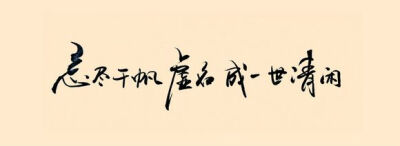 忘尽千帆虚名成一世清闲